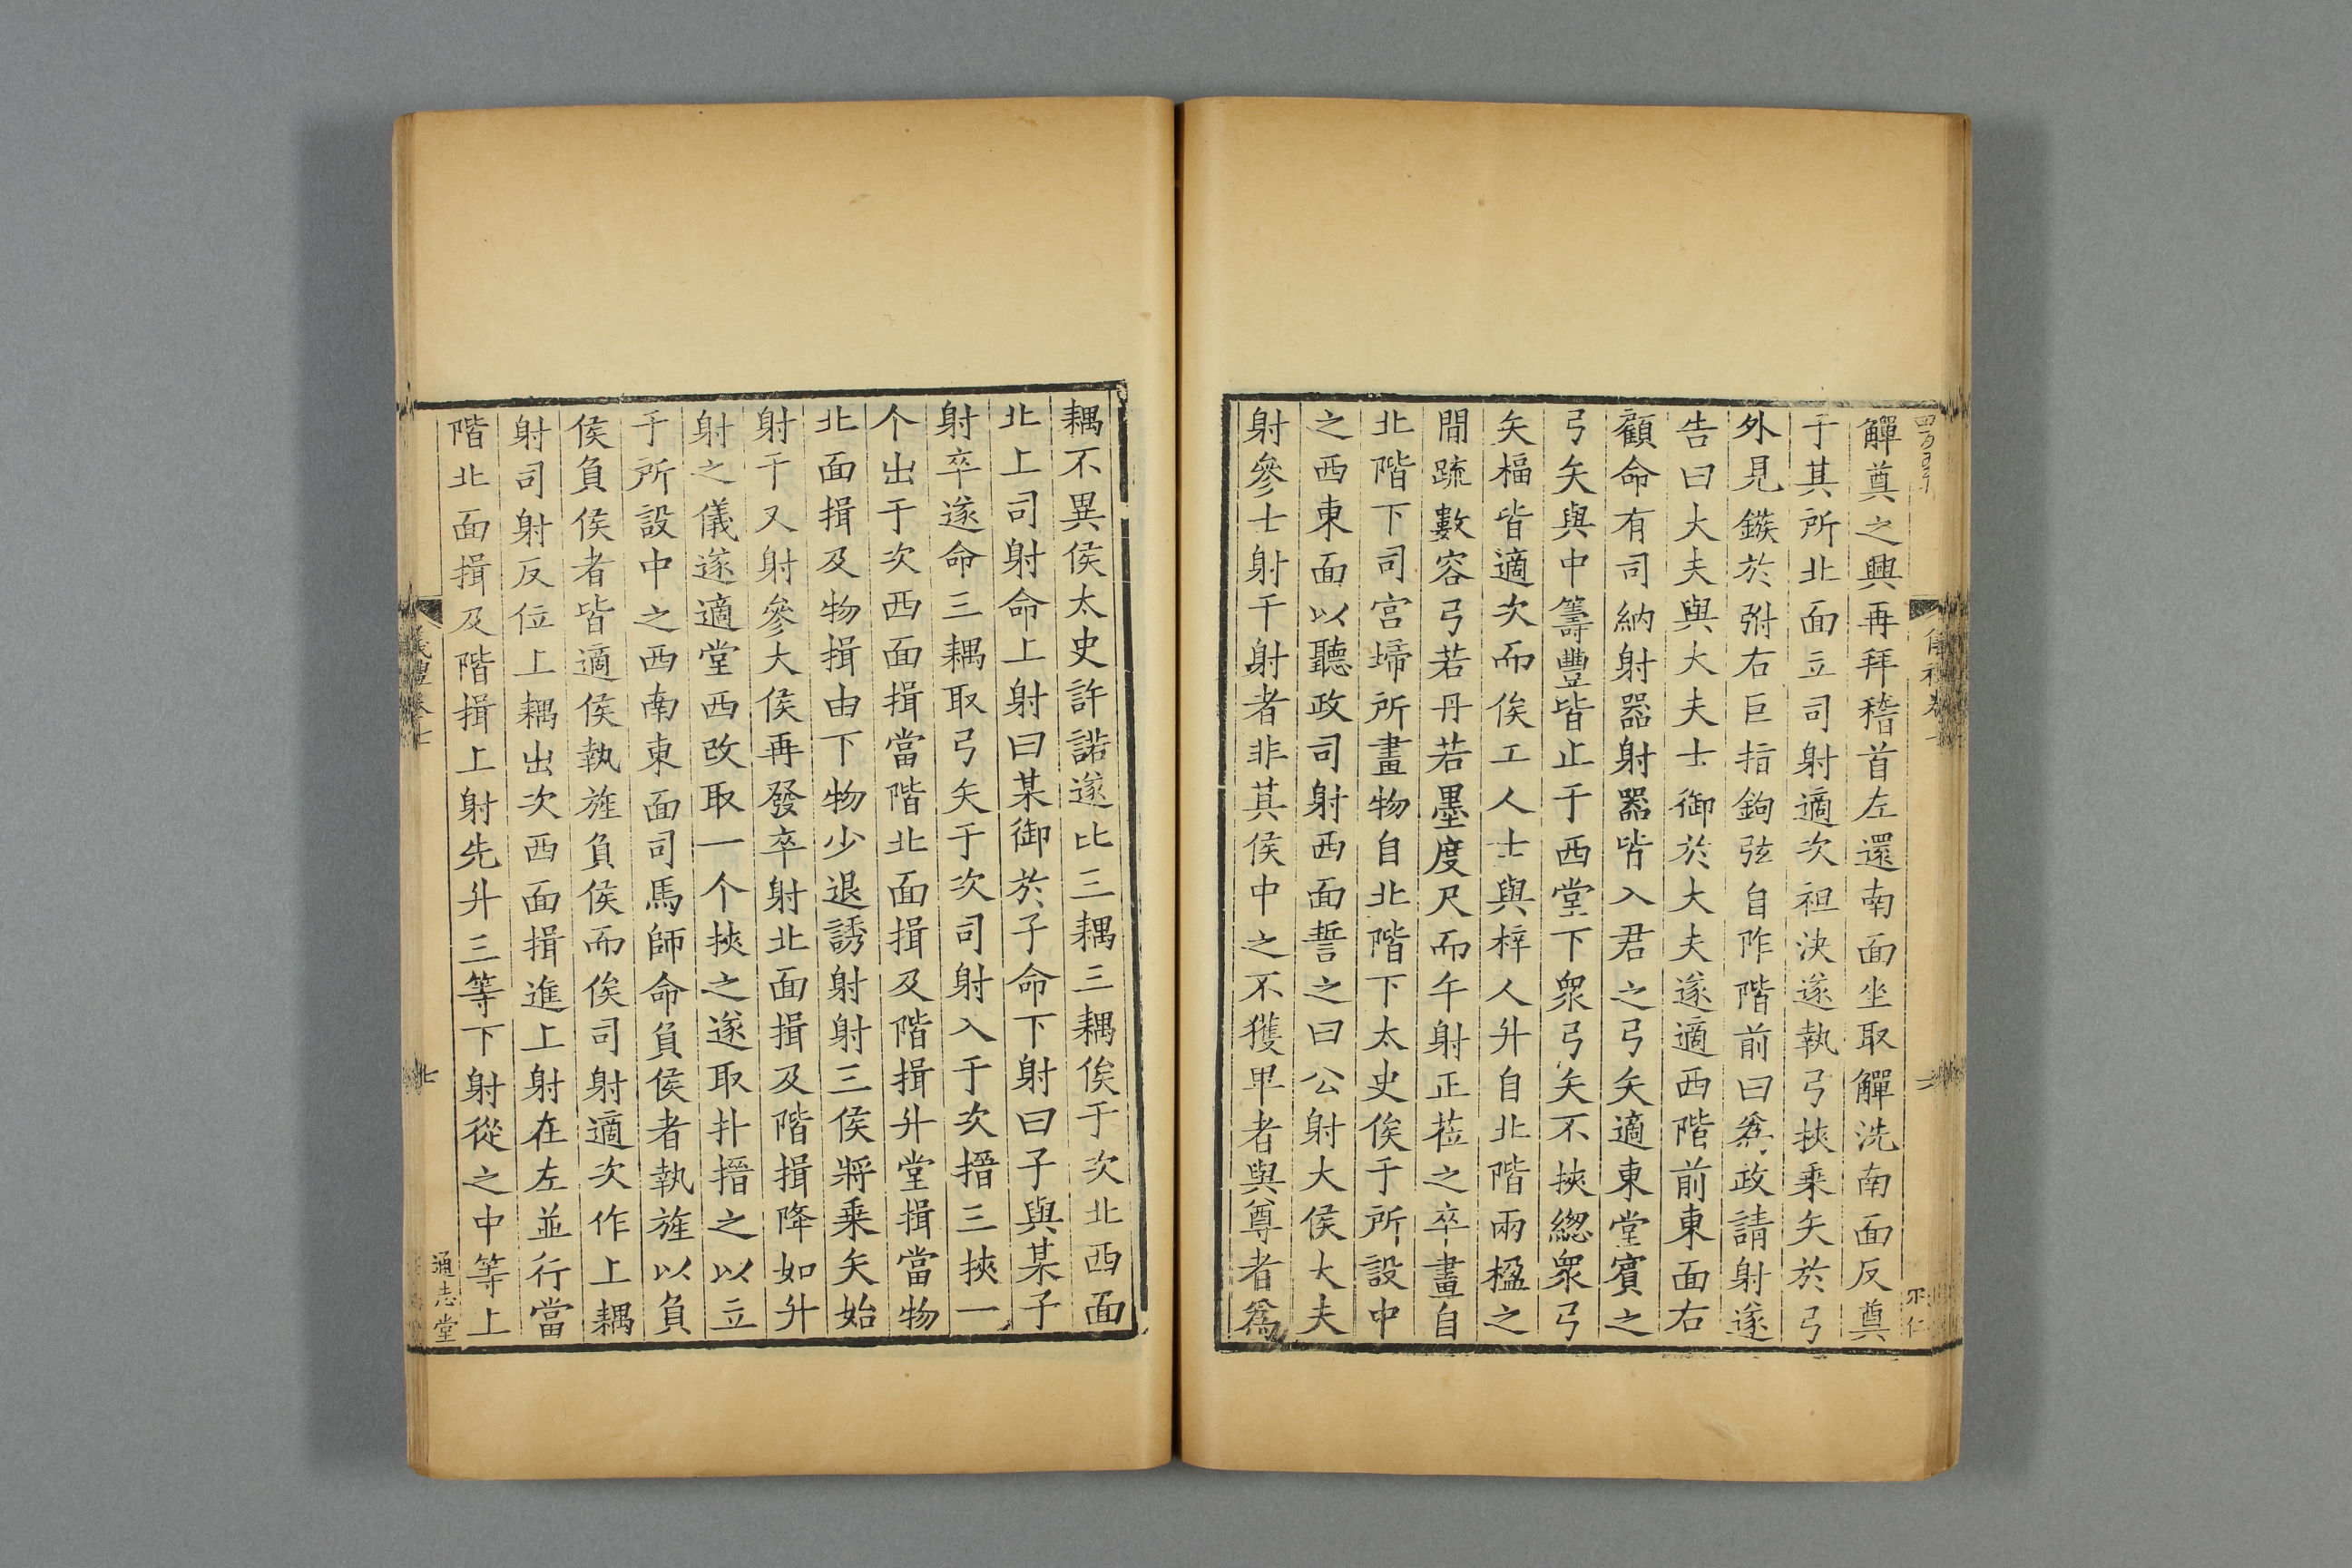 觶奠之興再拜稽首左還南面坐取觶洗南面反奠
于其所北面立司射適次袒決遂執弓挾乘矢於弓
外見鏃於弣右巨指鉤弦自阼階前曰爲政請射遂
告曰大夫與大夫士御於大夫遂適西階前東面右
顧命有司納射器射器皆入君之弓矢適東堂賓之
弓矢與中籌豐皆止于西堂下衆弓矢不挾緫衆弓
矢楅皆適次而俟工人士與梓人升自北階兩楹之
間疏數容弓若丹若墨度尺而午射正莅之卒畫自
北階下司宮埽所畫物自北階下太史俟于所設中
之西東面以聽政司射西面誓之曰公射大侯大夫
射參士射干射者非其侯中之不獲卑者與尊者爲
耦不異侯太史許諾遂比三耦三耦俟于次北西面
北上司射命上射曰某御於子命下射曰子與某子
射卒遂命三耦取弓矢于次司射入于次搢三挾一
个出于次西面揖當階北面揖及階揖升堂揖當物
北面揖及物揖由下物少退誘射射三侯將乘矢始
射干又射參大侯再發卒射北面揖及階揖降如升
射之儀遂適堂西改取一个挾之遂取扑搢之以立
于所設中之西南東面司馬師命負侯者執旌以負
侯負侯者皆適侯執旌負侯而俟司射適次作上耦
射司射反位上耦出次西面揖進上射在左並行當
階北面揖及階揖上射先升三等下射從之中等上
儀禮卷七
七
通志堂